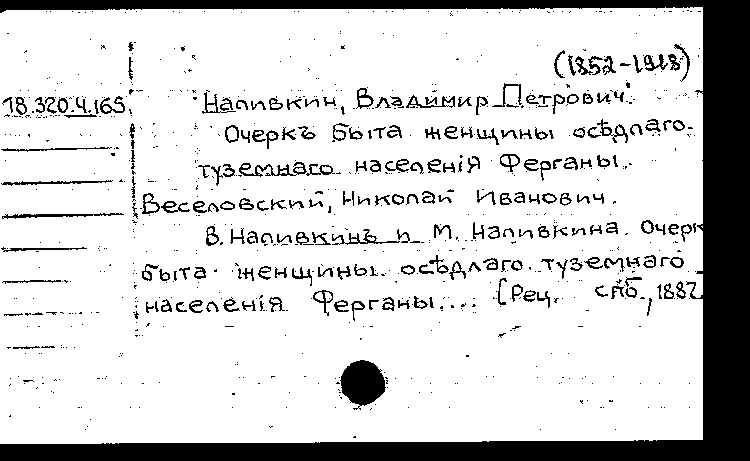 (1852-1918)
18.320.4.165. Наливкин, Владимир Петрович.
Очеркъ быта женщины осѣдлаго
туземнаго населенія Ферганы.
Веселовский, Николай Иванович.
В. Наливкинъ и М. Наливкина. Очерк
быта женщины осѣдлаго туземнаго
населенія Ферганы.... [Рец. Спб., 1887